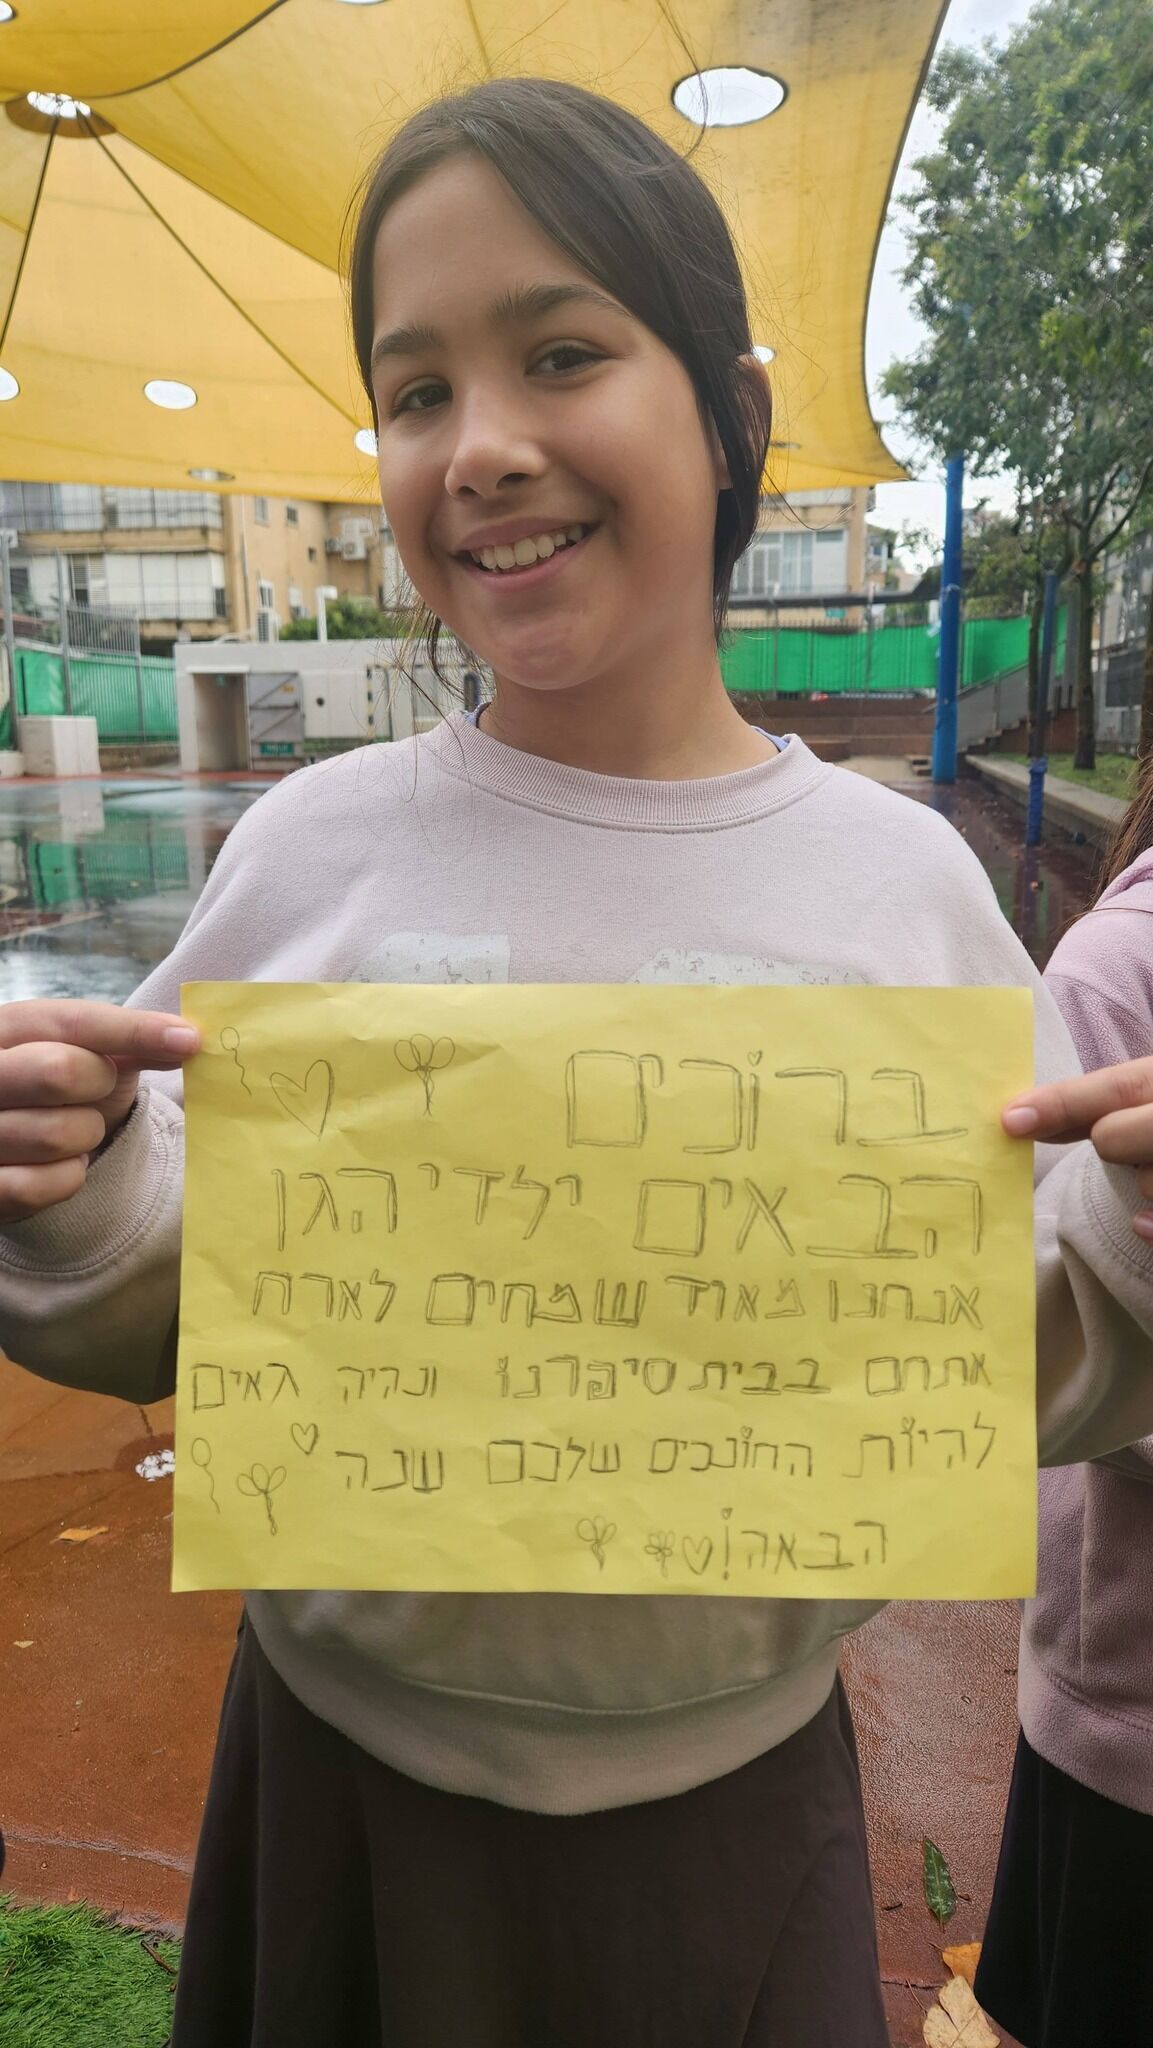 ברוכים
הבאים ילדי הגן
אנחנו מאוד שמחים לארח
אתחם בבית סיפרנו ונהיה גאים
להיות החונכים שלכם שנה
הבאה!